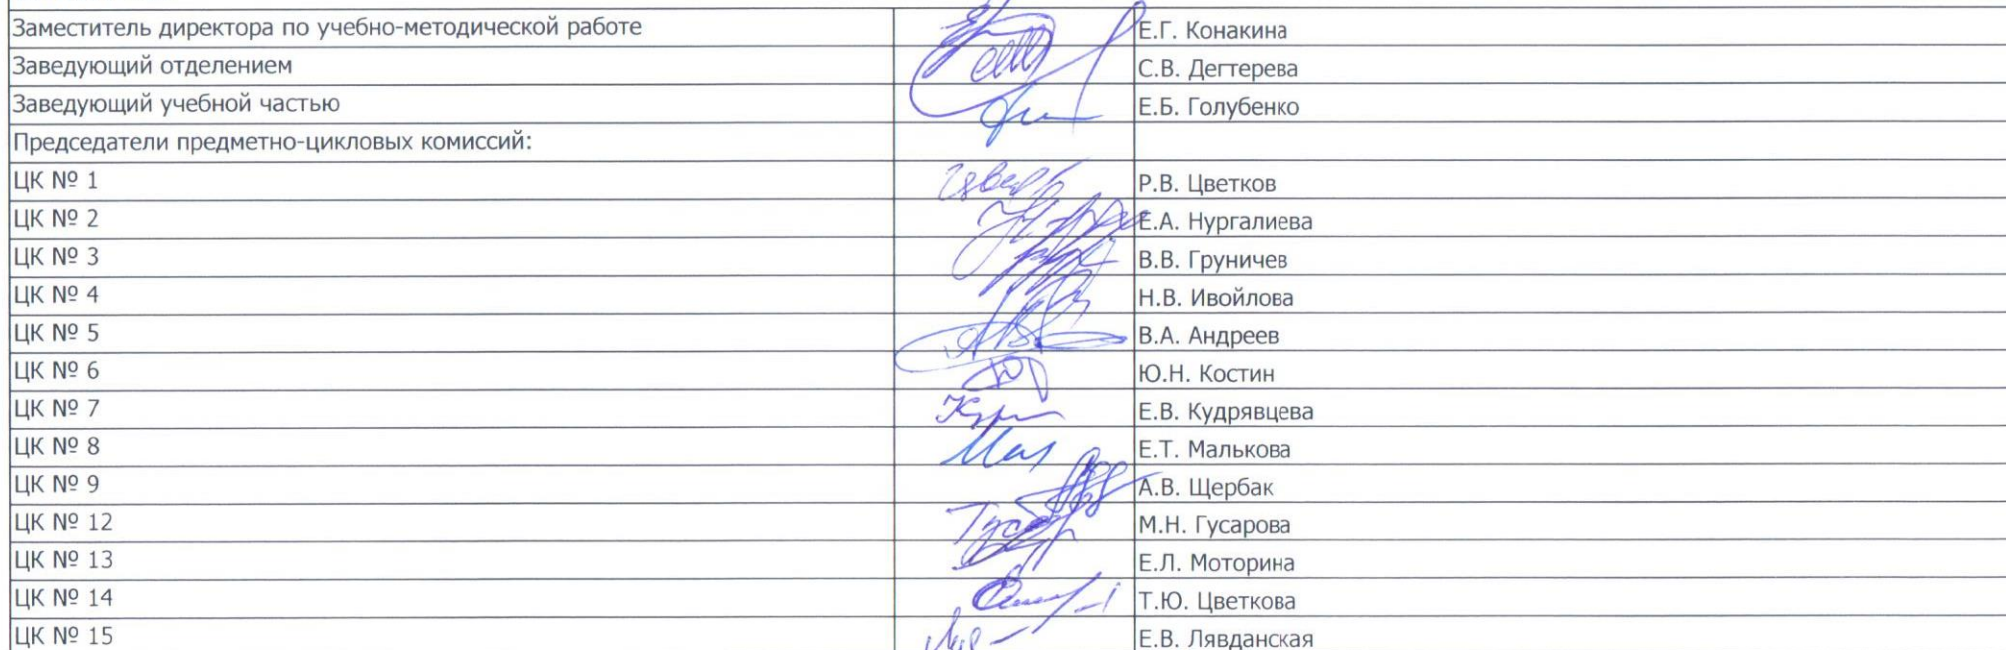 Заместитель директора по учебно-методической работе Е.Г. Конакина
Заведующий отделением С.В. Дегтерева
Заведующий учебной частью Е.Б. Голубенко
Председатели предметно-цикловых комиссий:
ЦК № 1 Р.В. Цветков
ЦК № 2 Е.А. Нургалиева
ЦК № 3 В.В. Груничев
ЦК № 4 Н.В. Ивойлова
ЦК № 5 В.А. Андреев
ЦК № 6 Ю.Н. Костин
ЦК № 7 Е.В. Кудрявцева
ЦК № 8 Е.Т. Малькова
ЦК № 9 А.В. Щербак
ЦК № 12 М.Н. Гусарова
ЦК № 13 Е.Л. Моторина
ЦК № 14 Т.Ю. Цветкова
ЦК № 15 Е.В. Лявданская